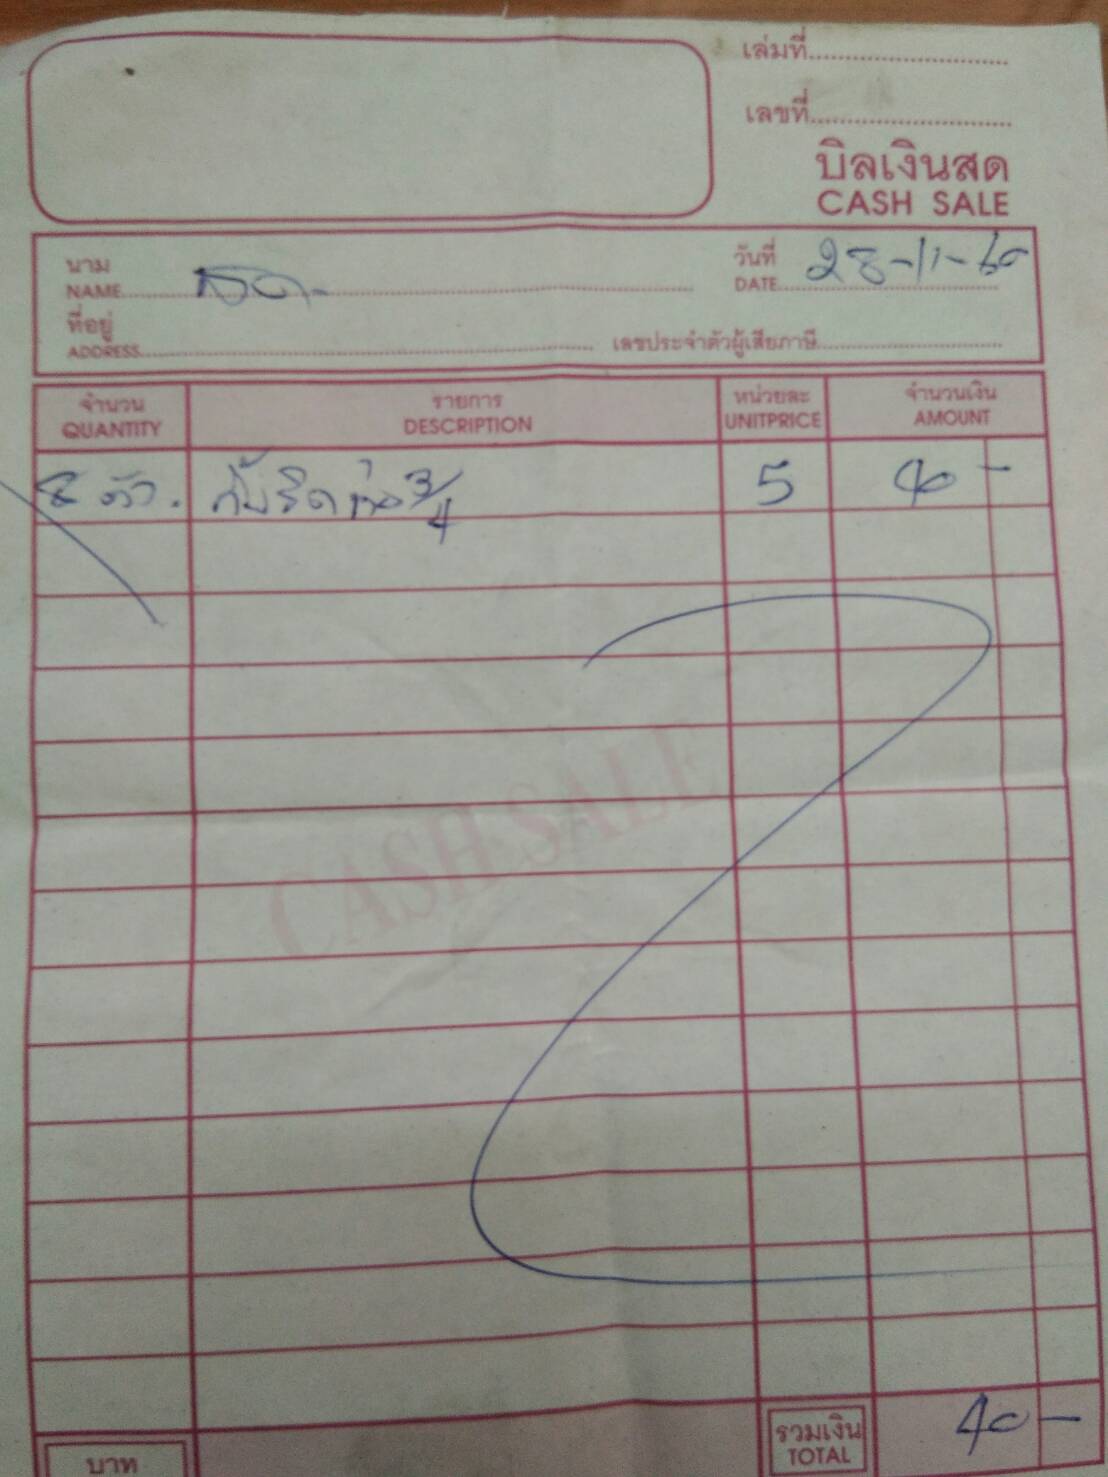 เล่มที่
เลขที่
บิลเงินสด
CASH SALE
นาม
NAME
สด
วันที่
DATE
28-11-60
ที่อยู่
ADDRESS
เลขประจำตัวผู้เสียภาษี
จำนวน
QUANTITY
รายการ
DESCRIPTION
หน่วยละ
UNITPRICE
จำนวนเงิน
AMOUNT
8 ตัว. กิ๊บรัดท่อ 3/4 5 40 -
CASH SALE
บาท
รวมเงิน
TOTAL
40 -